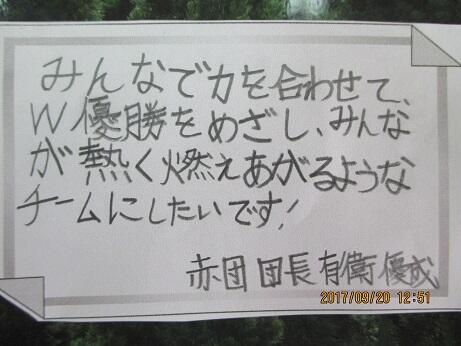 みんなで力を合わせて、
W優勝をめざし、みんな
が熱く燃えあがるような
チームにしたいです!
赤団 団長 有衛 優成
2017/09/20 12:51